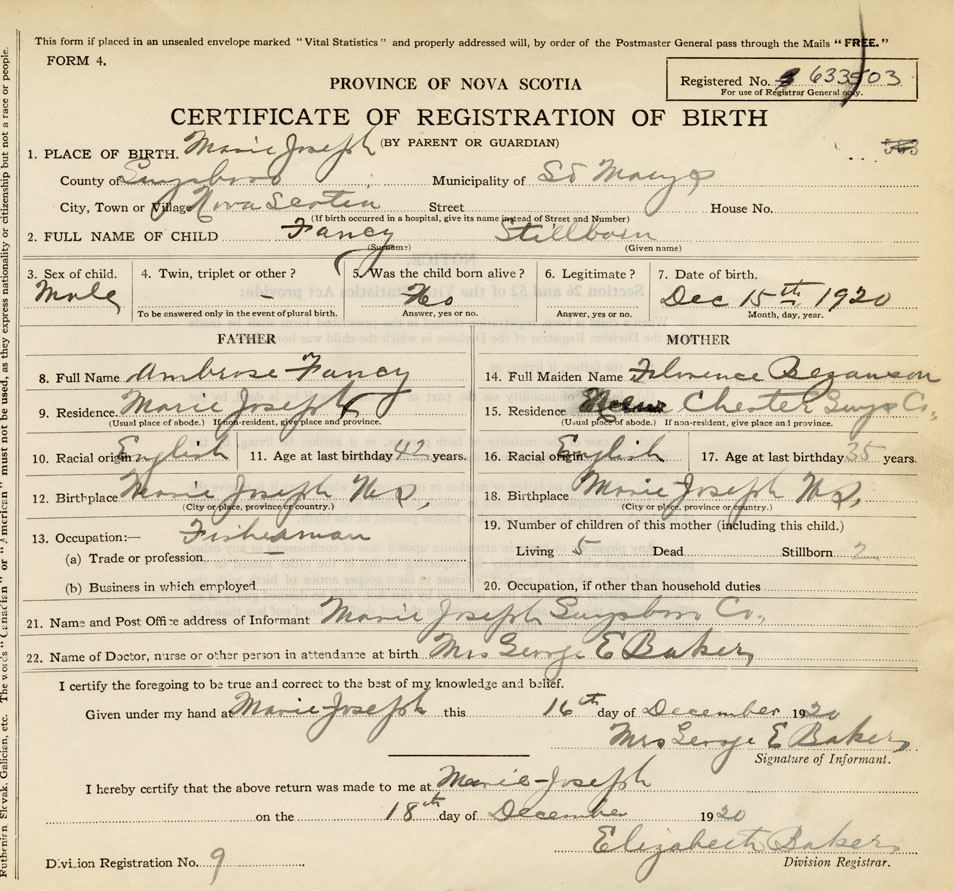 This form if placed in an unsealed envelope marked "Vital Statistics" and properly addressed will, by order of the Postmaster General pass through the Mails "FREE."
FORM 4.
Registered No. 633503
For use of Registrar General only.
PROVINCE OF NOVA SCOTIA
CERTIFICATE OF REGISTRATION OF BIRTH
(BY PARENT OR GUARDIAN)
1. PLACE OF BIRTH. Marie Joseph
County of Guysboro Municipality of St Marys
City, Town or Village Nova Scotia Street House No.
(If birth occurred in a hospital, give its name instead of Street and Number)
2. FULL NAME OF CHILD Fancy Stillborn
(Surname) (Given name)
3. Sex of child. 4. Twin, triplet or other? 5. Was the child born alive? 6. Legitimate? 7. Date of birth.
Male - No Dec 15th 1920
To be answered only in the event of plural birth. Answer, yes or no. Answer, yes or no. Month, day, year.
FATHER MOTHER
8. Full Name Ambrose Fancy 14. Full Maiden Name Florence Bezanson
9. Residence Marie Joseph 15. Residence Chester Guys Co,
(Usual place of abode.) If non-resident, give place and province. (Usual place of abode.) If non-resident, give place and province.
10. Racial origin English 11. Age at last birthday 42 years. 16. Racial origin English 17. Age at last birthday 35 years.
12. Birthplace Marie Joseph N.S. 18. Birthplace Marie Joseph N.S.
(City or place, province or country.) (City or place, province or country.)
13. Occupation:— Fisherman 19. Number of children of this mother (including this child.)
(a) Trade or profession Living 5 Dead Stillborn 2
(b) Business in which employed 20. Occupation, if other than household duties
21. Name and Post Office address of Informant Marie Joseph Guysboro Co.,
22. Name of Doctor, nurse or other person in attendance at birth Mrs George E Baker
I certify the foregoing to be true and correct to the best of my knowledge and belief.
Given under my hand at Marie Joseph this 16th day of December 1920
Mrs George E Baker
Signature of Informant.
I hereby certify that the above return was made to me at Marie-Joseph
on the 18th day of December 1920
Elizabeth Baker
Division Registrar.
Division Registration No. 9
Ruthenian, Slovak, Galician, etc. The words "Canadian" or "American" must not be used, as they express nationality or citizenship but not a race or people.